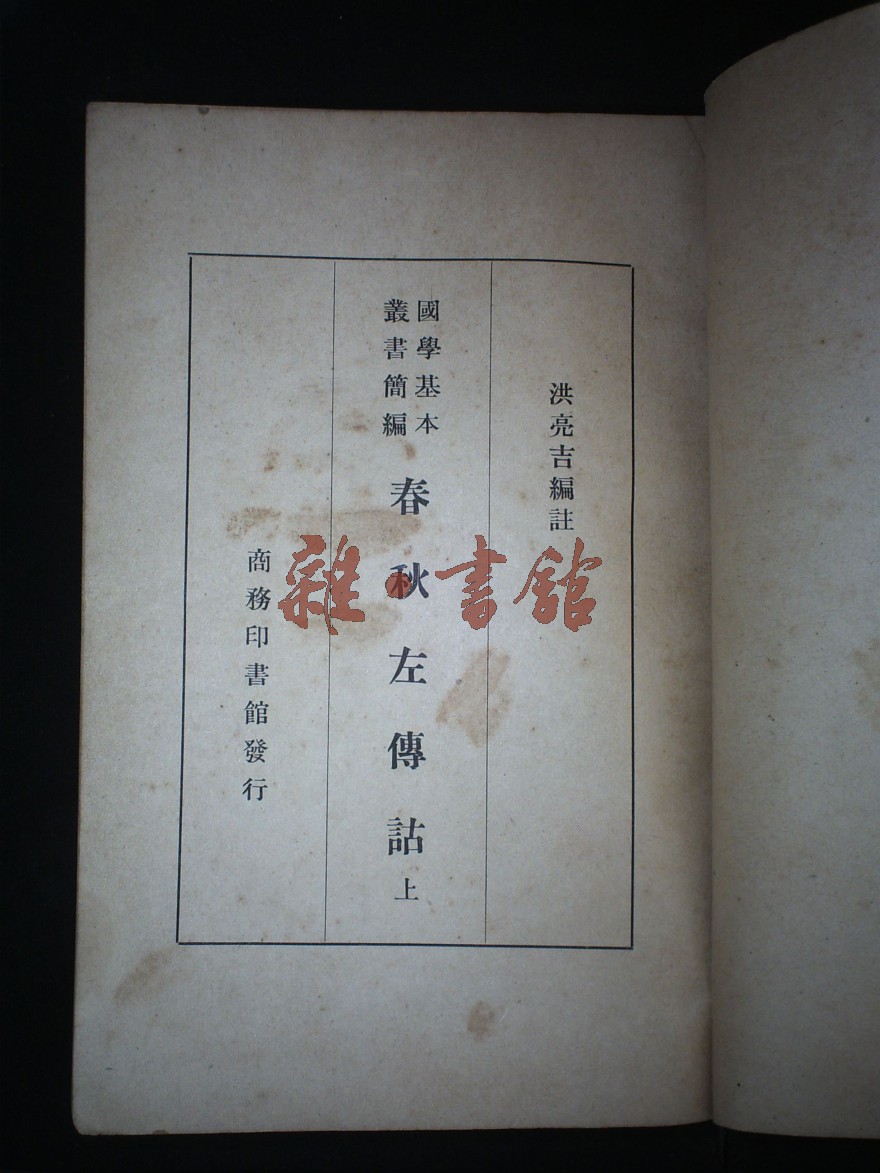 洪亮吉編註
國學基本
叢書簡編
春秋左傳詁上
商務印書館發行
雜·書館